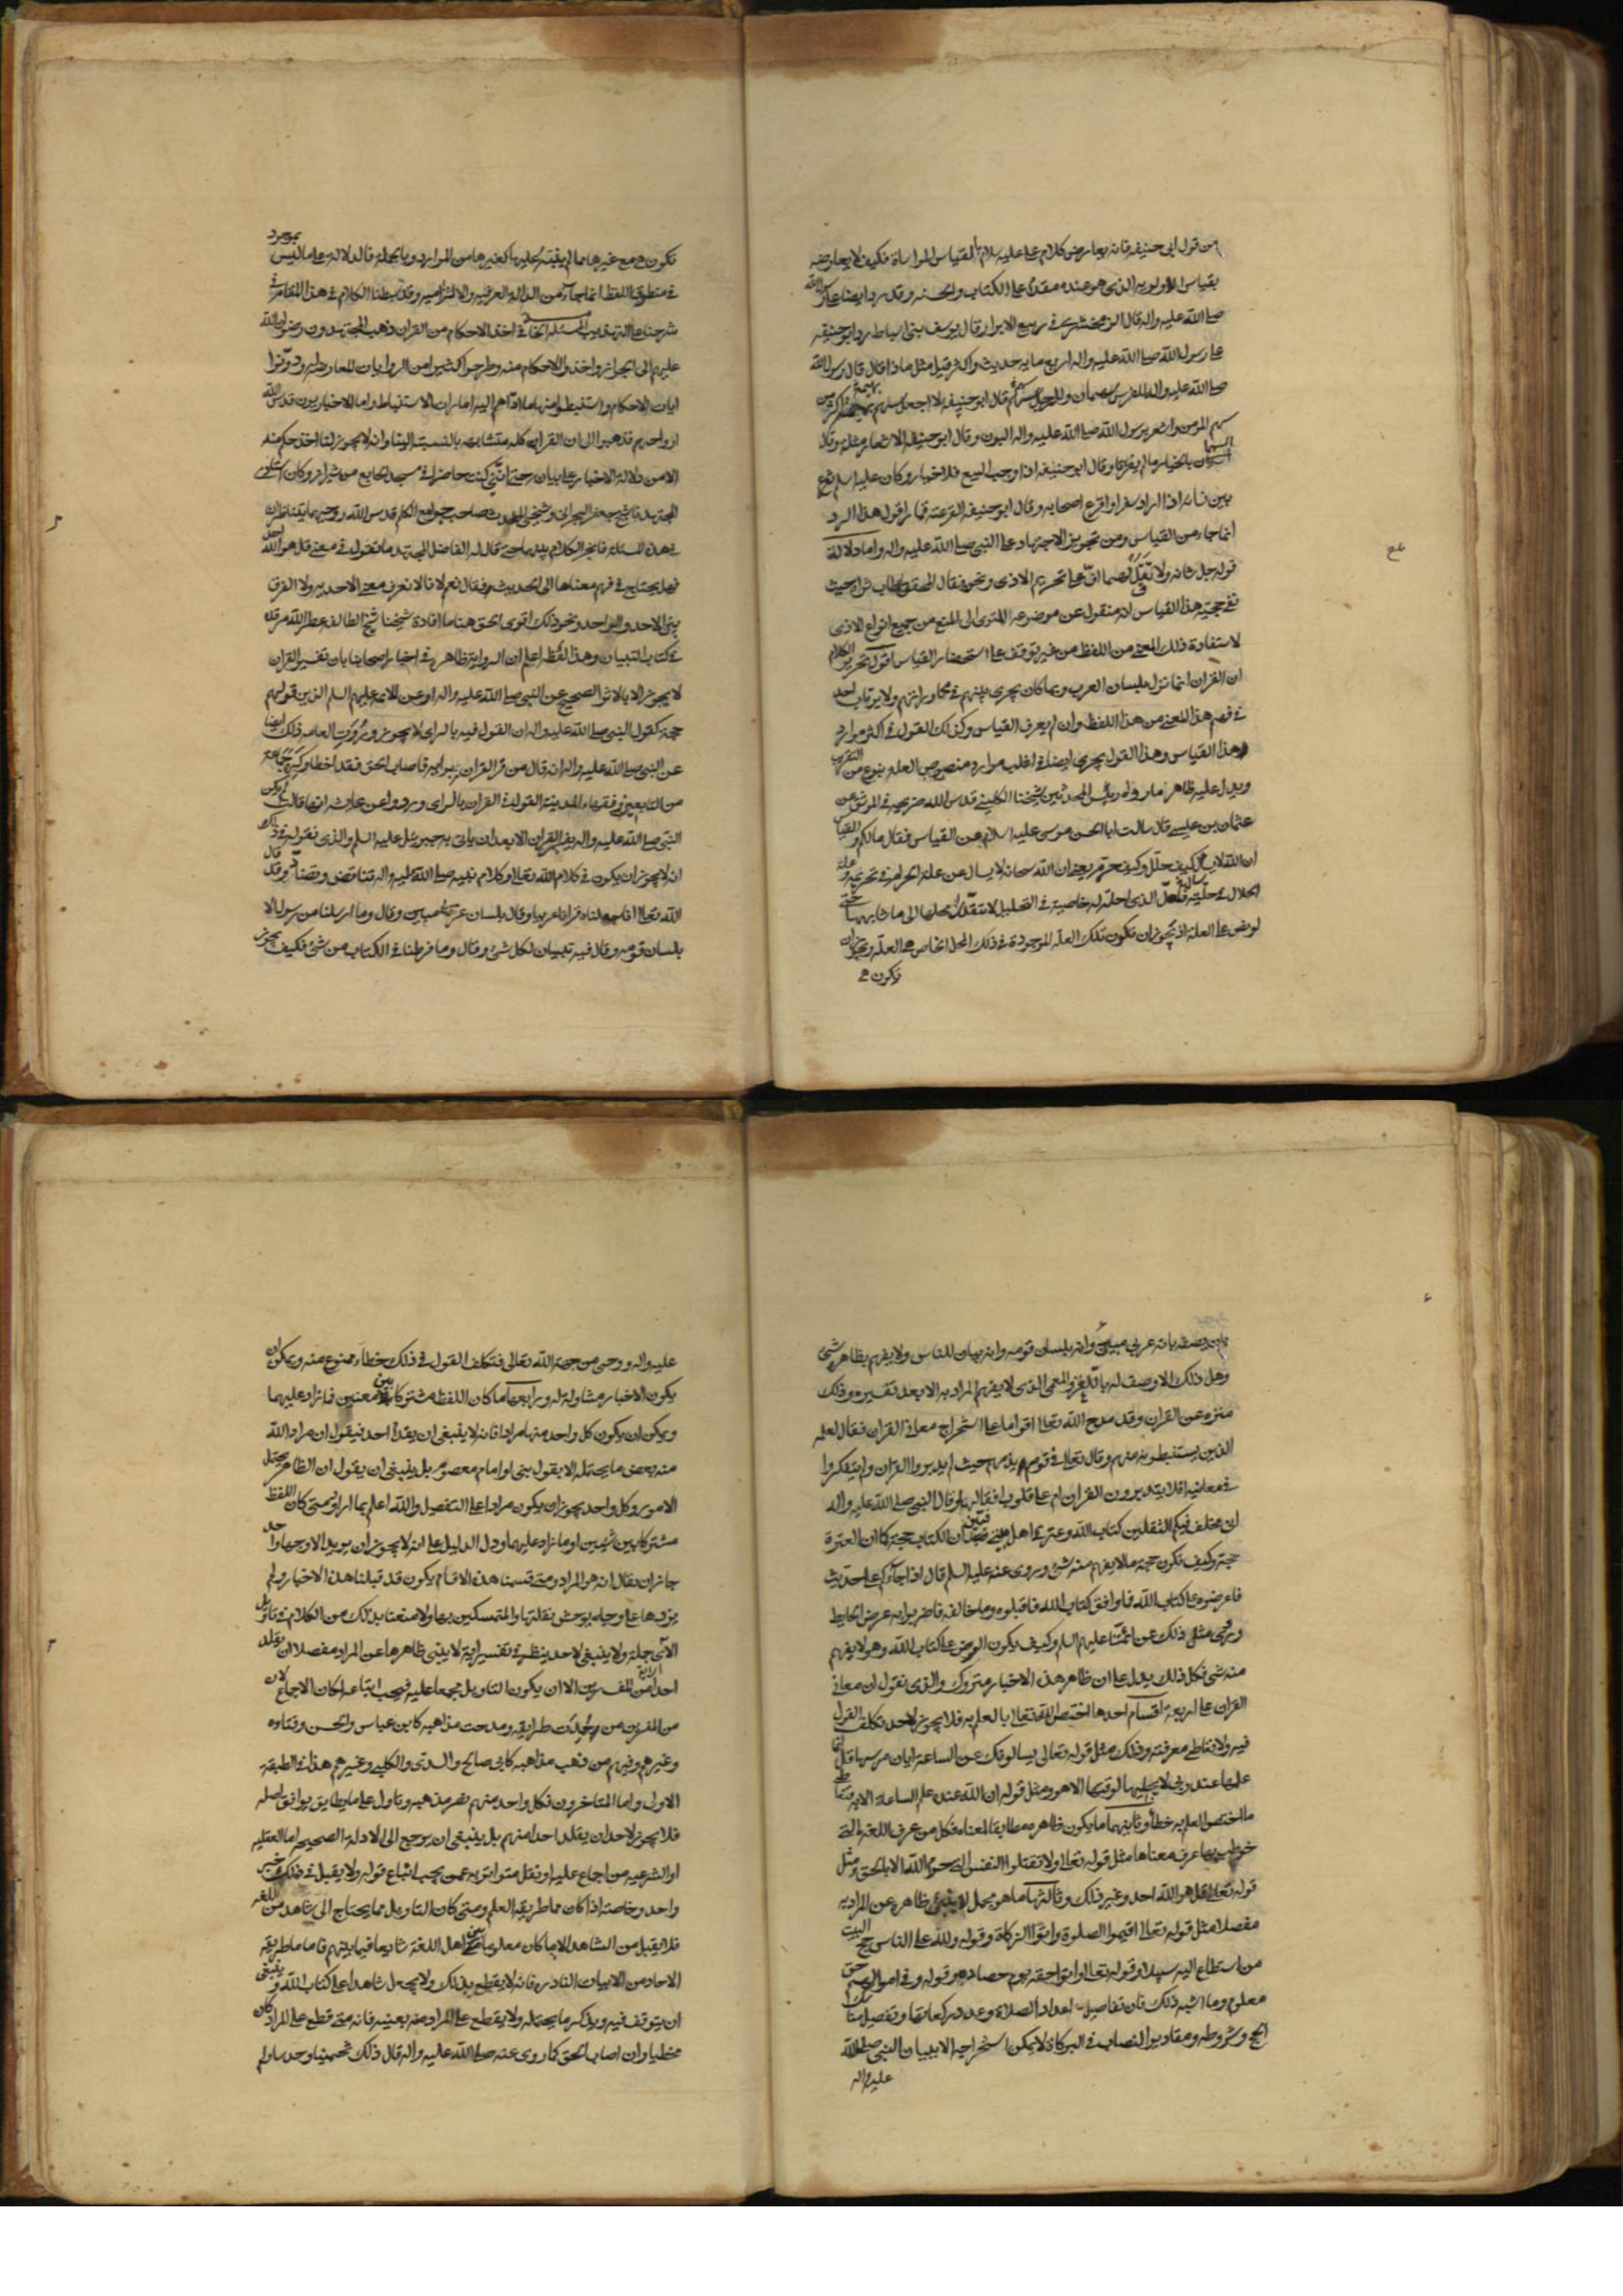 من قول ابي حنيفه فانه يعارض كلام علي عليه سلام بالقياس المساواة فكيف لا يعارضه
بقياس الاولويه الذي هو عنده مقدم علي الكتاب والسنه وقد رد ايضا علي رسول الله
صلى الله عليه واله قال الزمخشري في ربيع الابرار قال يوسف بن اسباط رد ابو حنيفه
علي رسول الله صلى الله عليه واله اربع مايه حديث واكثر قيل مثل ماذا قال قال رسول الله
صلى الله عليه واله للفرس سهمان وللرجل سهم قال ابو حنيفه لا اجعل سهم بهيمة اكثر من
سهم المومن واشعر رسول الله صلى الله عليه واله البدن وقال ابو حنيفه الاشعار مثلة وقال
البيعان بالخيار ما لم يفترقا وقال ابو حنيفه اذا وجب البيع فلا خيار وكان عليه السلم يقرع
بين نسائه اذا اراد سفرا واقرع اصحابه وقال ابو حنيفه القرعة قمار اقول هذا الرد
انما جاء من القياس ومن تجويز الاجتهاد على النبي صلى الله عليه واله واما دلالة
قوله جل شانه ولا تقل لهما اف على تحريم الاذى ونحوه فقال المحقق طاب ثراه حيث
نفى حجية هذا القياس انه منقول عن موضوعه اللغوى الى المنع من جميع انواع الاذى
لاستفادة ذلك المعنى من اللفظ من غير توقف على استحضار القياس اقول تحرير الكلام
ان القران انما نزل بلسان العرب وبما كان يجرى بينهم في محاوراتهم ولا يرتاب احد
في فهم هذا المعنى من هذا اللفظ وان لم يعرف القياس وكذلك القول في اكثر موارد
هذا القياس وهذا القول يجرى ايضا في اغلب موارد منصوص العلة بنوع من التقريب
ويدل عليه ظاهر ما رواه رئيس المحدثين شيخنا الكليني قدس الله ضريحه في الموثق عن
عثمان بن عيسى قال سالت ابا الحسن موسى عليه السلام عن القياس فقال مالكم والقياس
ان الله لا يسال كيف حلل وكيف حرم يعني ان الله سبحانه لا يسال عن علة الحرام في تحريمه وعلة
الحلال في حليته فلعل الذي احله له خاصية في التحليل لا تنتقل عن محلها الى ما شابهها حتى
لو نص على العلة اذ يجوز ان تكون تلك العلة الموجودة في ذلك المحل الخاص هي العلة ويجوز ان
تكون هي
تكون هي مع غيرها مما لم يقيته عليها كغيرها من الموارد وبالجملة فالدلالة على ما ليس بموجود
في منطوق اللفظ انما جاء من الدالة العرفيه والالتزاميه وقد بسطنا الكلام في هذا المقام في
شرحنا على التهذيب المسئلة الخا في اخذ الاحكام من القران ذهب المجتهدون رضوان الله
عليهم الى الجواز واخذوا الاحكام منه وطرحوا كثيرا من الروايات للمعارضة له ودونوا
ايات الاحكام واستنبطوا منها ما اداهم اليه امارات الاستنباط واما الاخباريون قدس الله
ارواحهم فذهبوا الى ان القران كله متشابه بالنسبة الينا وانه لا يجوز لنا اخذ حكم منه
الا من دلالة الاخبار على بيانه حتى انني كنت حاضرا في مسجد الجامع من شيراز وكان استادى
المجتهد شيخ جعفر البحراني وشيخي المحدث صاحب جوامع الكلم قدس الله روحيهما يتناظران
في هذه المسئلة فانجر الكلام بينهما حتى قال له الفاضل المجتهد ما تقول في معنى قل هو الله احد
فهل يحتاج في فهم معناها الى الحديث فقال نعم لانا لا نعرف معنى الاحديه ولا الفرق
بين الاحد والواحد ونحو ذلك اقول الحق هنا ما افادة شيخنا شيخ الطائفه عطر الله مرقده
في كتاب التبيان وهذا لفظه اعلم ان الرواية ظاهرة في اخبار اصحابنا بان تفسير القران
لا يجوز الا بالاثر الصحيح عن النبي صلى الله عليه واله او عن الائمه عليهم السلم الذين قولهم
حجة كقول النبي صلى الله عليه واله ان القول فيه بالراى لا يجوز وروت العامه ذلك ايضا
عن النبي صلى الله عليه واله انه قال من فسر القران برايه فاصاب الحق فقد اخطأ وكره جماعة
من التابعين فقهاء المدينة القول في القران بالراى ورووا عن عايشه انها قالت لم يكن
النبي صلى الله عليه واله يفسر القران الا بعد ان ياتى به جبرئيل عليه السلم والذى نقوله في ذلك
انه لا يجوز ان يكون في كلام الله تعالى وكلام نبيه صلى الله عليه واله تناقض وتضاد وقد قال
الله تعالى انا جعلناه قرانا عربيا وقال بلسان عربي مبين وقال وما ارسلنا من رسول الا
بلسان قومه وقال فيه تبيان لكل شئ وقال وما فرطنا في الكتاب من شئ فكيف يجوز
ان يوصف بانه عربي مبين وانه بلسان قومه وانه بيان للناس ولا يفهم بظاهره شئ
وهل ذلك الا وصف له باللغز والمعمى الذى لا يفهم المراد به الا بعد تفسيره وذلك
منزه عن القران وقد مدح الله تعالى اقواما على استخراج معاني القران فقال لعلمه
الذين يستنبطونه منهم وقال تعالى في قوم يذمهم حيث لم يدبروا القران ولم يتفكروا
في معانيه افلا يتدبرون القران ام على قلوب اقفالها وقال النبي صلى الله عليه واله
انى مخلف فيكم الثقلين كتاب الله وعترتي اهل بيتي فبين ان الكتاب حجة كما ان العترة
حجة وكيف تكون حجة ما لا يفهم منه شئ وروى عنه عليه السلم قال اذا جاءكم عني حديث
فاعرضوه على كتاب الله فما وافق كتاب الله فاقبلوه وما خالفه فاضربوا به عرض الحايط
وروى مثل ذلك عن ائمتنا عليهم السلم وكيف يكون العرض على كتاب الله وهو لا يفهم
منه شى فكل ذلك يدل على ان ظاهر هذه الاخبار متروك والذى نقول ان معانى
القران على اربعة اقسام احدها اختص الله تعالى بالعلم به فلا يجوز لاحد تكلف القول
فيه ولا تعاطى معرفته وذلك مثل قوله تعالى يسالونك عن الساعة ايان مرسها قل انما
علمها عند ربي لا يجليها لوقتها الا هو ومثل قوله ان الله عنده علم الساعة الاية فتعاطى
ما اختص العلم به خطأ وثانيهما ما يكون ظاهره مطابقا لمعناه فكل من عرف اللغة التي
خوطب بها عرف معناها مثل قوله تعالى ولا تقتلوا النفس التي حرم الله الا بالحق ومثل
قوله تعالى قل هو الله احد وغير ذلك وثالثها ما هو مجمل لا ينبئ ظاهره عن المراد به
مفصلا مثل قوله تعالى اقيموا الصلوة واتوا الزكاة وقوله ولله على الناس حج البيت
من استطاع اليه سبيلا وقوله تعالى واتوا حقه يوم حصاده وقوله وفي اموالهم حق
معلوم وما اشبه ذلك فان تفاصيل اعداد الصلاة وعدد ركعاتها وتفصيل مناسك
الحج وشروطه ومقادير النصاب في الزكاة لا يمكن استخراجه الا ببيان النبي صلى الله
عليه واله
عليه واله ووحى من جهة الله تعالى فتكلف القول في ذلك خطاء ممنوع منه ويمكن ان
يكون الاخبار متناولة له ورابعها ما كان اللفظ مشتركا بين معنيين فما زاد عليهما
ويمكن ان يكون كل واحد منها مرادا فانه لا ينبغى ان يقدم احد فيقول ان مراد الله
منه بعض ما يحتمله الا بقول نبى او امام معصوم بل ينبغي ان يقول ان الظاهر يحتمل
الامور وكل واحد يجوز ان يكون مرادا على التفصيل والله اعلم بما اراد ومتى كان اللفظ
مشتركا بين شيئين او ما زاد عليهما ودل الدليل على انه لا يجوز ان يريد الا وجها واحدا
جاز ان يقال انه هو المراد ومتى قسمنا هذه الاقسام يكون قد قبلنا هذه الاخبار ولم
نردها على وجه يوحش نقلتها والمتمسكين بها ولا منعنا بذلك من الكلام في تاويل
الآى جملة ولا ينبغي لاحد ينظر في تفسير اية لا ينبى ظاهرها عن المراد مفصلا ان يقلد
احدا من المفسرين الا ان يكون التاويل مجمعا عليه فيجب اتباعه لمكان الاجماع لان
من المفسرين من حمدت طرايقه ومدحت مذاهبه كابن عباس والحسن وقتاده
وغيرهم وفيهم من ذمت مذاهبه كابى صالح والسدى والكلبى وغيرهم هذا في الطبقة
الاولى واما المتاخرون فكل واحد منهم نصر مذهبه وتاول على ما يطابق يوافق اصله
فلا يجوز لاحد ان يقلد احدا منهم بل ينبغي ان يرجع الى الادلة الصحيحه اما العقليه
او الشرعيه من اجماع عليه او نقل متواتر به عمن يجب اتباع قوله ولا يقبل في ذلك خبر
واحد وخاصة اذا كان مما طريقه العلم ومتى كان التاويل مما يحتاج الى شاهد من اللغه
فلا يقبل من الشاهد الا ما كان معلوما بين اهل اللغة شايعا فيما بينهم فاما ما طريقه
الاحاد من الابيات النادره فانه لا يقطع بذلك ولا يجعل شاهدا على كتاب الله وينبغى
ان يتوقف فيه ويذكر ما يحتمله ولا يقطع على المراد منه بعينه فانه متى قطع على المراد كان
مخطيا وان اصاب الحق كما روى عنه صلى الله عليه واله قال ذلك تخمينا وحدسا ولم